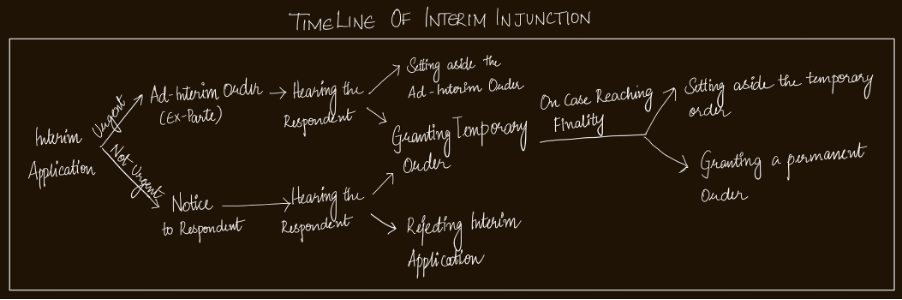 TIMELINE OF INTERIM INJUNCTION
Interim
Application
Urgent
Not Urgent
Ad-Interim Order
(Ex-Parte)
Hearing the
Respondent
Setting aside the
Ad-Interim Order
Granting Temporary
Order
Notice
to Respondent
Hearing the
Respondent
Rejecting Interim
Application
On Case Reaching
Finality
Setting aside the temporary
order
Granting a permanent
Order